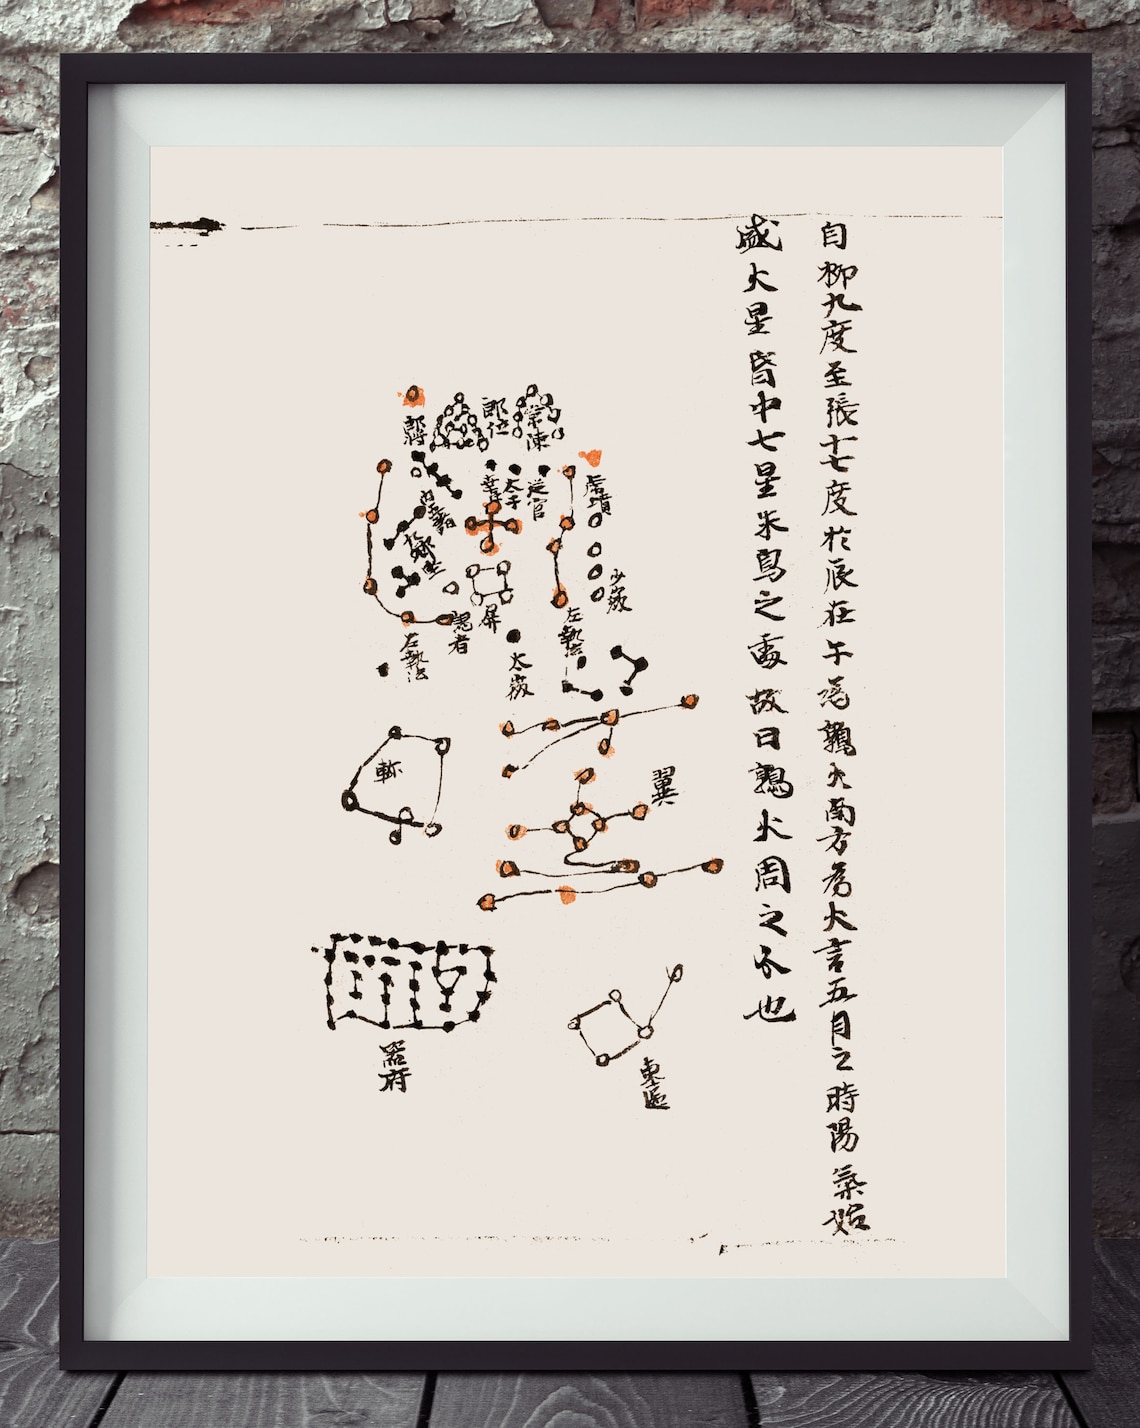 自柳九度至張十七度於辰在午為鶉火南方為火言五月之時陽氣始
盛火星昏中七星朱鳥之處故曰鶉火周之分也
常陳
郎位
郎將
虎賁
從官
太子
幸臣
少微
屏
謁者
左執法
左執法
太微
翼
軫
東區
器府